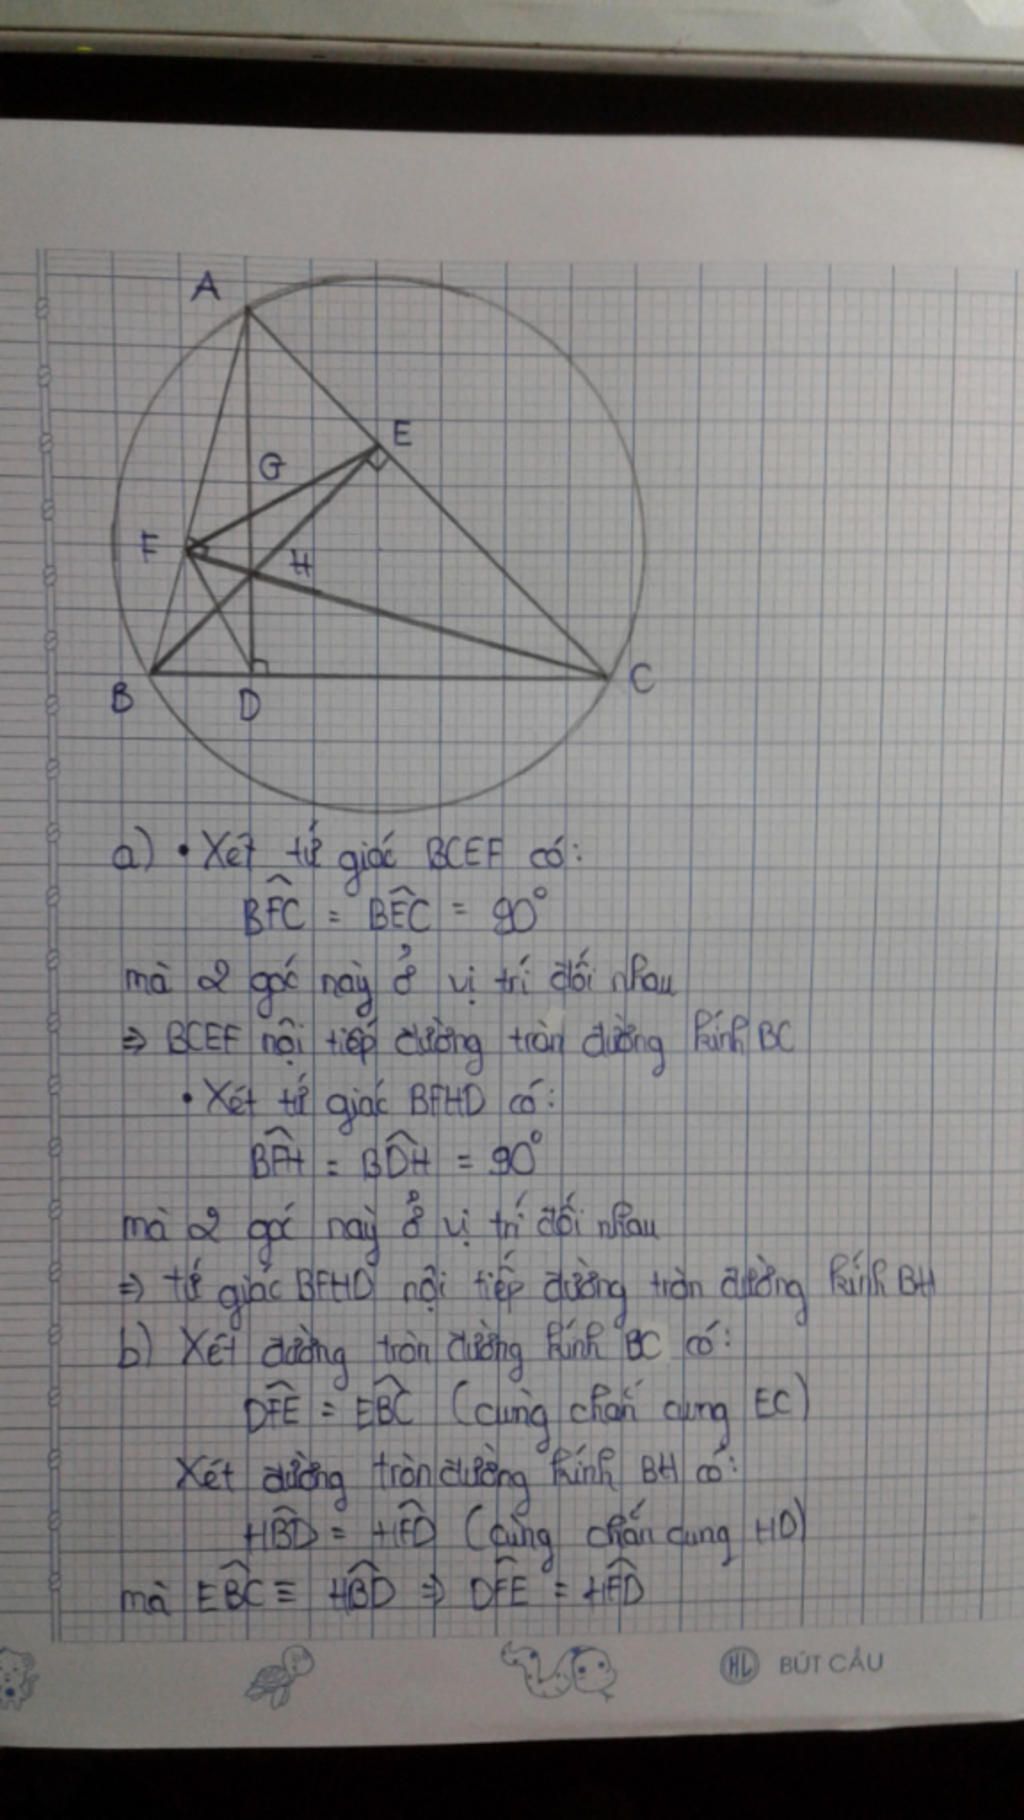 A
E
G
F
H
B
D
C
a) • Xét tứ giác BCEF có:
BF̂C = BÊC = 90°
mà 2 góc này ở vị trí đối nhau
⇒ BCEF nội tiếp đường tròn đường kính BC
• Xét tứ giác BFHD có:
BF̂H = BD̂H = 90°
mà 2 góc này ở vị trí đối nhau
⇒ tứ giác BFHD nội tiếp đường tròn đường kính BH
b) Xét đường tròn đường kính BC có:
DF̂E = EB̂C (cùng chắn cung EC)
Xét đường tròn đường kính BH có:
HB̂D = HF̂D (cùng chắn cung HD)
mà EB̂C ≡ HB̂D ⇒ DF̂E = HF̂D
HL BÚT CÂU